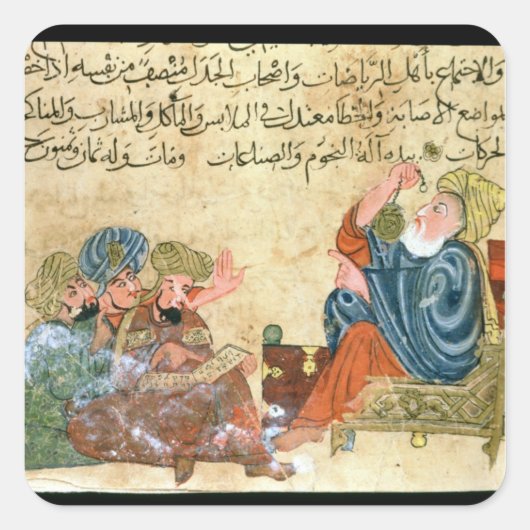 والاجتماع بأهل الرياضات واصحاب الجدل منتصف من نفسه اذا
لمواضع الاصابة والخطا معتدل في الملابس والمآكل والمشارب والمناكح
الحركات بيده آلة النجوم والصناعات ومات وله ثمان وستون